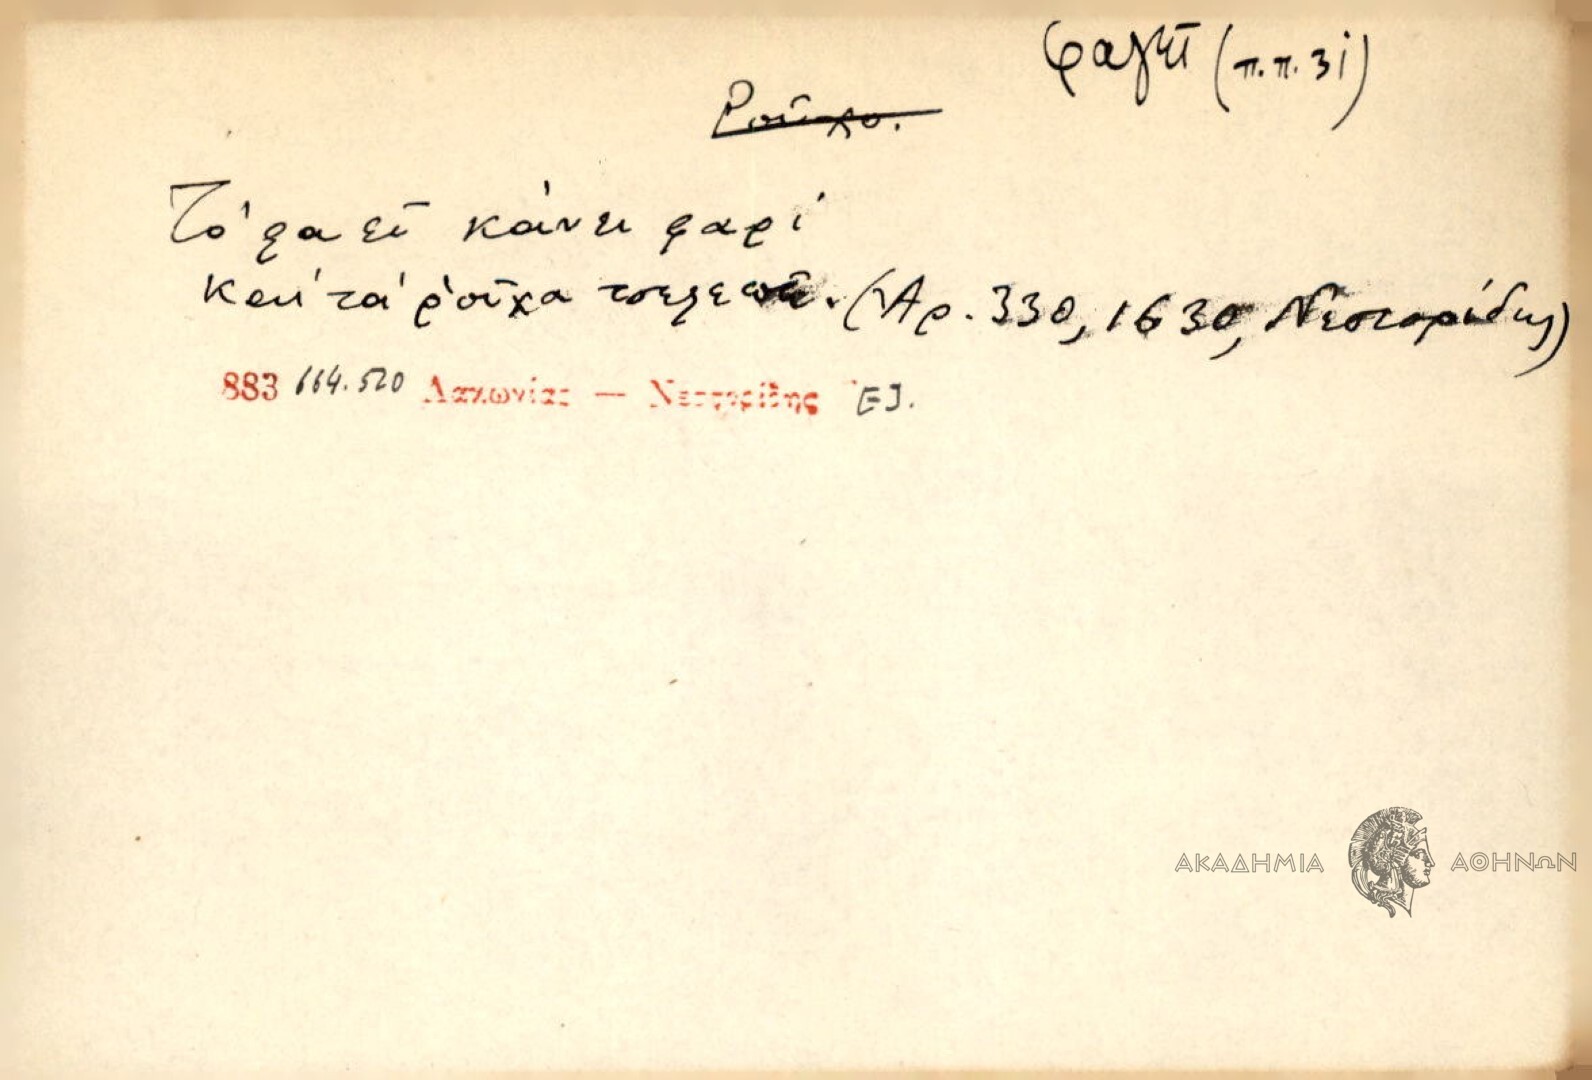 φαγεῖ (π.π. 31)
Ροῦχο.
Τὸ φαεῖ κάνει φαρὶ
καὶ τὰ ροῦχα τσελεπῆ. (Ἀρ. 330, 1630, Νεστορίδης)
883 664.520 Λακωνίας — Νεστορίδης Ε].
ΑΚΑΔΗΜΙΑ ΑΘΗΝΩΝ